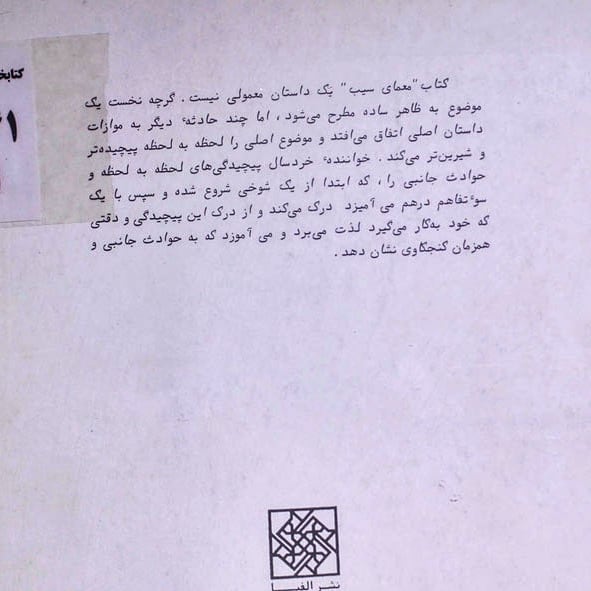 کتابخ
۲۱
کتاب "معمای سیب" یک داستان معمولی نیست. گرچه نخست یک
موضوع به ظاهر ساده مطرح می‌شود، اما چند حادثهٔ دیگر به موازات
داستان اصلی اتفاق می‌افتد و موضوع اصلی را لحظه به لحظه پیچیده‌تر
و شیرین‌تر می‌کند. خوانندهٔ خردسال پیچیدگی‌های لحظه به لحظه و
حوادث جانبی را، که ابتدا از یک شوخی شروع شده و سپس با یک
سوءتفاهم درهم می آمیزد درک می‌کند و از درک این پیچیدگی و دقتی
که خود به‌کار می‌گیرد لذت می‌برد و می آموزد که به حوادث جانبی و
همزمان کنجکاوی نشان دهد.
نشر الفبا